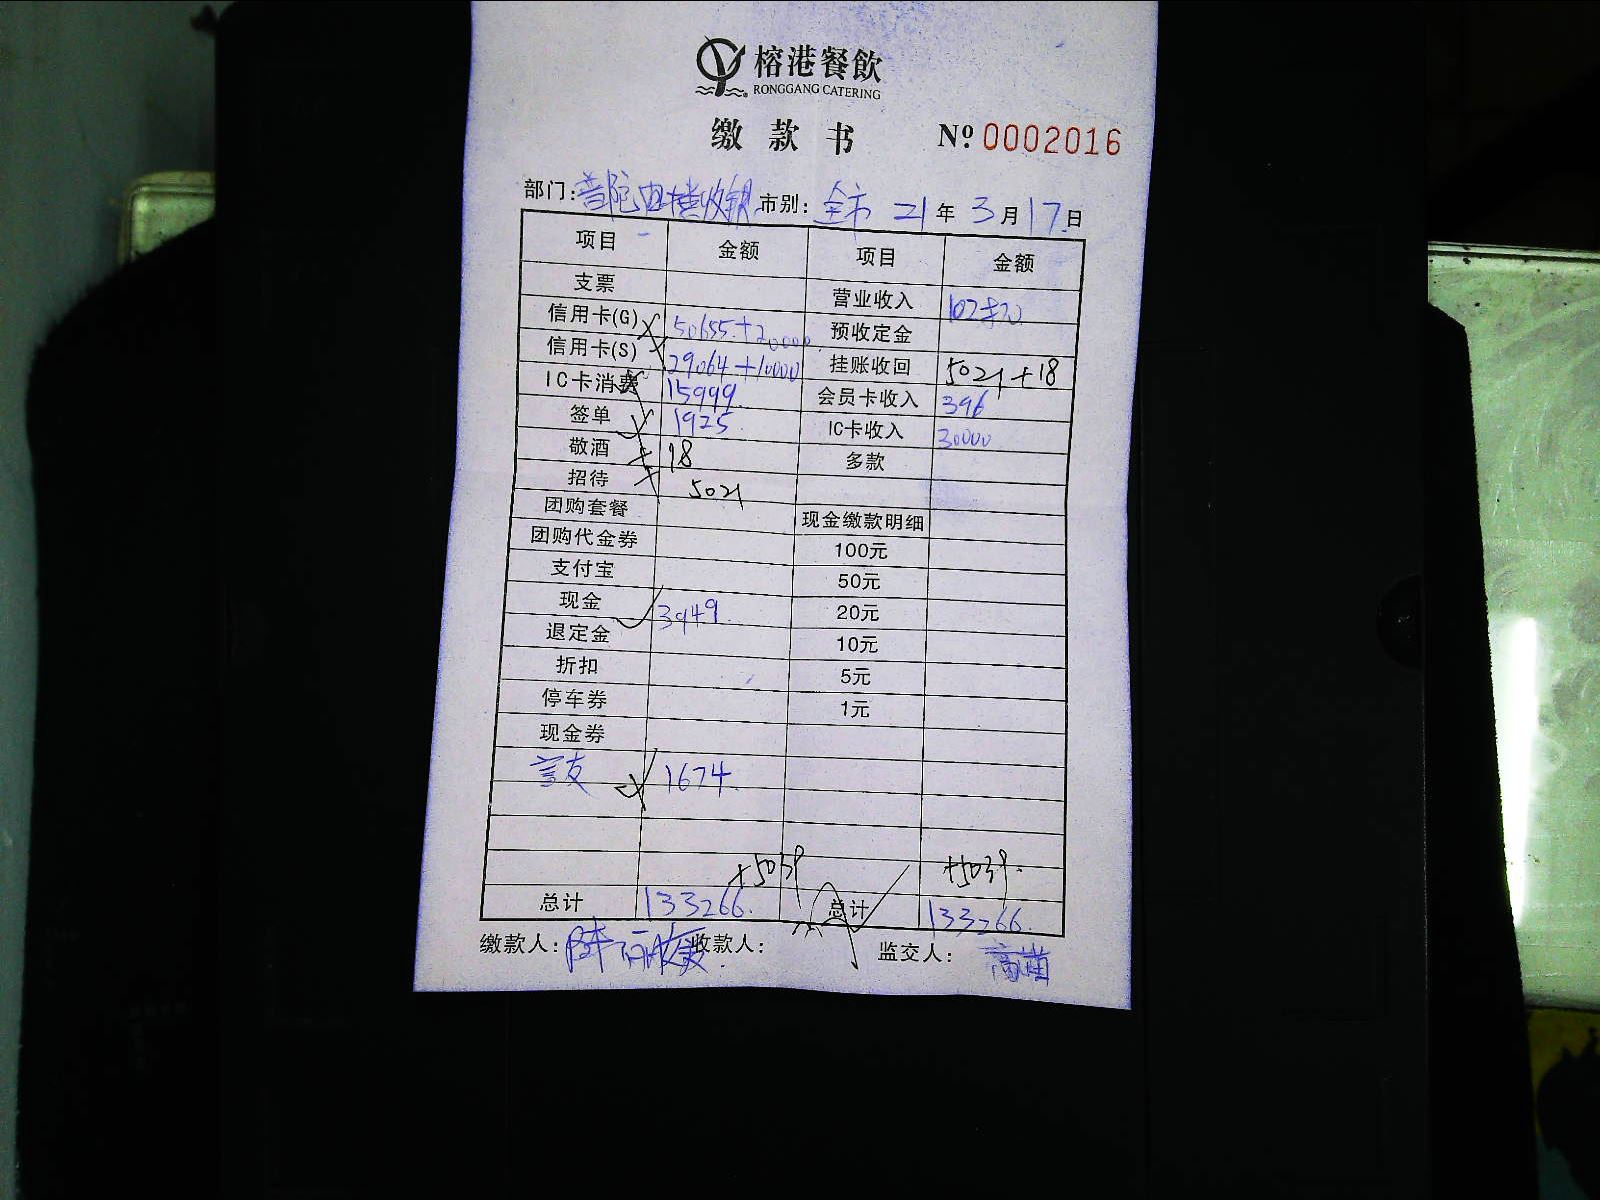 榕港餐飲
RONGGANG CATERING
缴款书 Nº 0002016
部门: 普陀 收银 市别: 全市 21年3月17日
项目 金额 项目 金额
支票 营业收入
信用卡(G) 50655+20000 预收定金
信用卡(S) 29064+10000 挂账收回 5021+18
IC卡消费 15999 会员卡收入 396
签单 1925 IC卡收入 30000
敬酒 18 多款
招待 5021
团购套餐 现金缴款明细
团购代金券 100元
支付宝 50元
现金 3949 20元
退定金 10元
折扣 5元
停车券 1元
现金券
1674
+5039 +5039
总计 133266 总计 133266
缴款人: 收款人: 监交人: